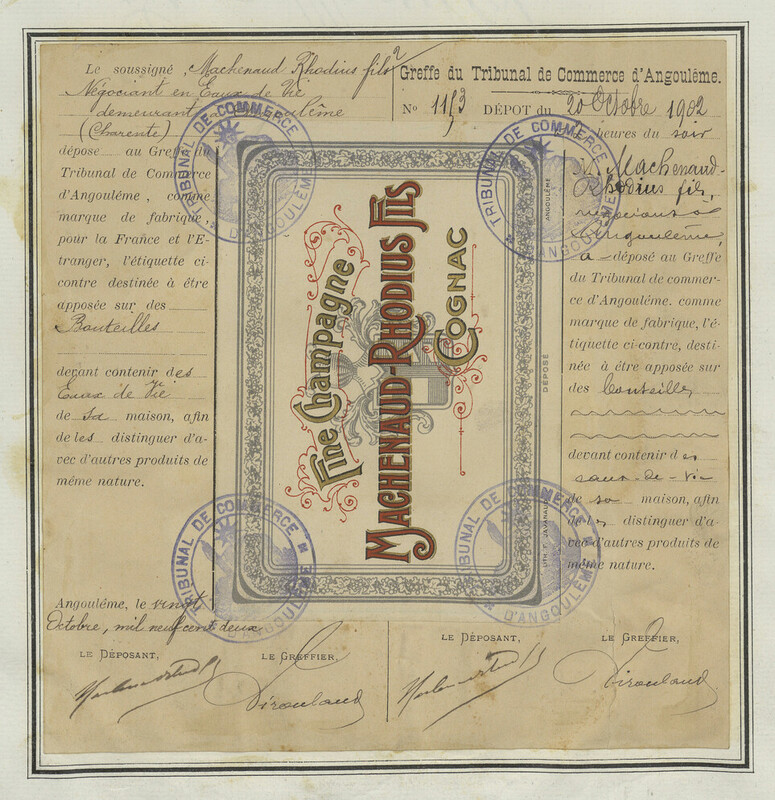 Le soussigné, Machenaud Rhodius fils
Négociant en Eaux de Vie
demeurant à Angoulême
(Charente)
dépose au Greffe du
Tribunal de Commerce
d'Angoulême, comme
marque de fabrique,
pour la France et l'E-
tranger, l'étiquette ci-
contre destinée à être
apposée sur des
Bouteilles
devant contenir des
Eaux de Vie
de sa maison, afin
de les distinguer d'a-
vec d'autres produits de
même nature.
Angoulême, le vingt
Octobre, mil neuf cent deux
LE DÉPOSANT,
LE GREFFIER,
Greffe du Tribunal de Commerce d'Angoulême.
No DÉPOT du 20 Octobre 1902
heures du soir
M. Machenaud-
Rhodius fils,
négociant à
Angoulême,
a déposé au Greffe
du Tribunal de commer-
ce d'Angoulême. comme
marque de fabrique, l'é-
tiquette ci-contre, desti-
née à être apposée sur
des bouteilles
devant contenir des
eaux-de-vie
de sa maison, afin
de les distinguer d'a-
vec d'autres produits de
même nature.
LE DÉPOSANT,
LE GREFFIER,
FINE CHAMPAGNE
MACHENAUD-RHODIUS FILS
COGNAC
DÉPOSÉ
ANGOULÊME
TRIBUNAL DE COMMERCE
D'ANGOULÊME
TRIBUNAL DE COMMERCE
D'ANGOULÊME
TRIBUNAL DE COMMERCE
D'ANGOULÊME
TRIBUNAL DE COMMERCE
D'ANGOULÊME